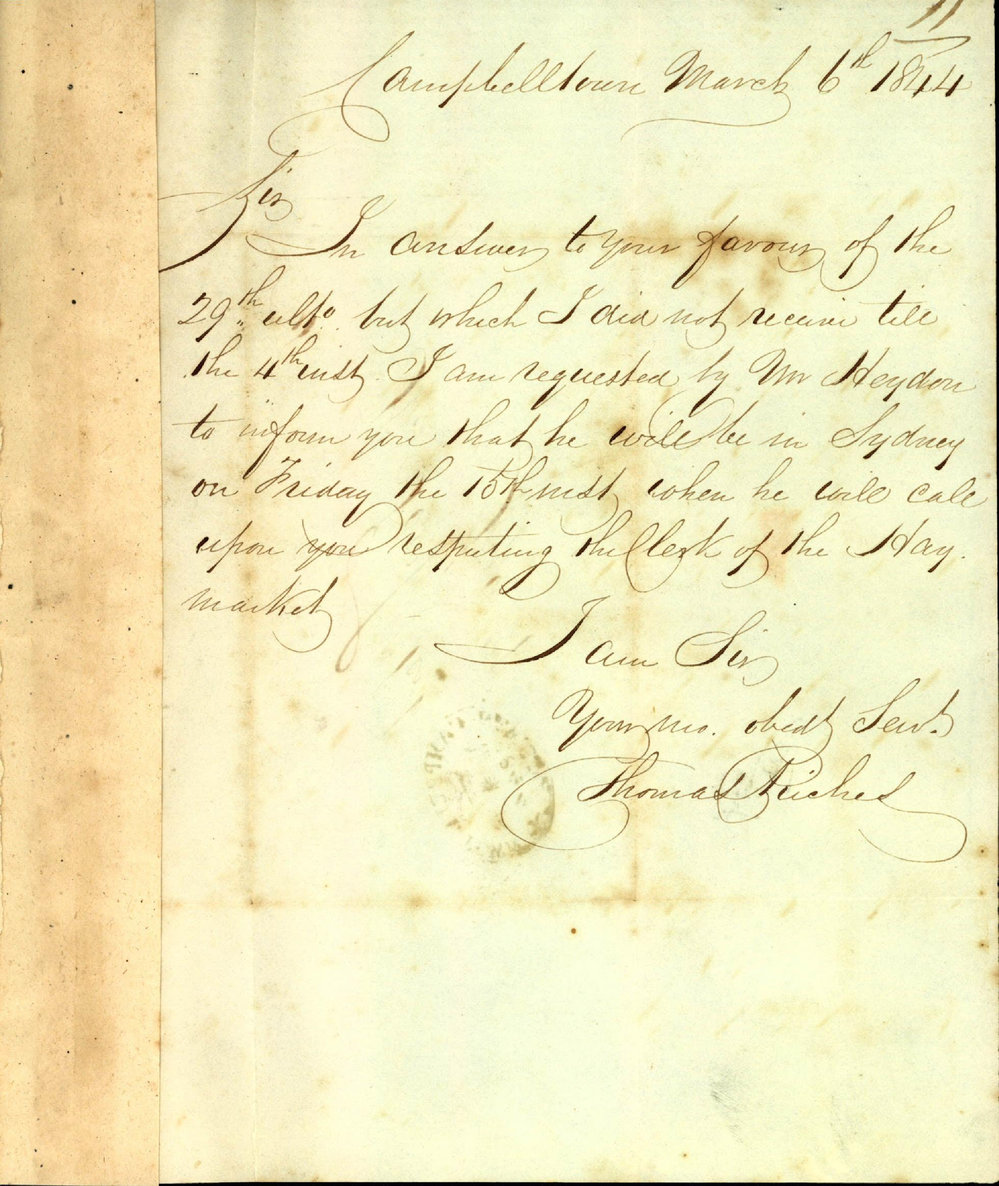 11
Campbelltown March 6th 1844
Sir
In answer to your favour of the
29th ulto. but which I did not receive till
the 4th inst. I am requested by Mr Heydon
to inform you that he will be in Sydney
on Friday the 15th inst when he will call
upon you respecting the Clerk of the Hay.
market
I am Sir
Your mo. obedt Servt.
Thomas Riches